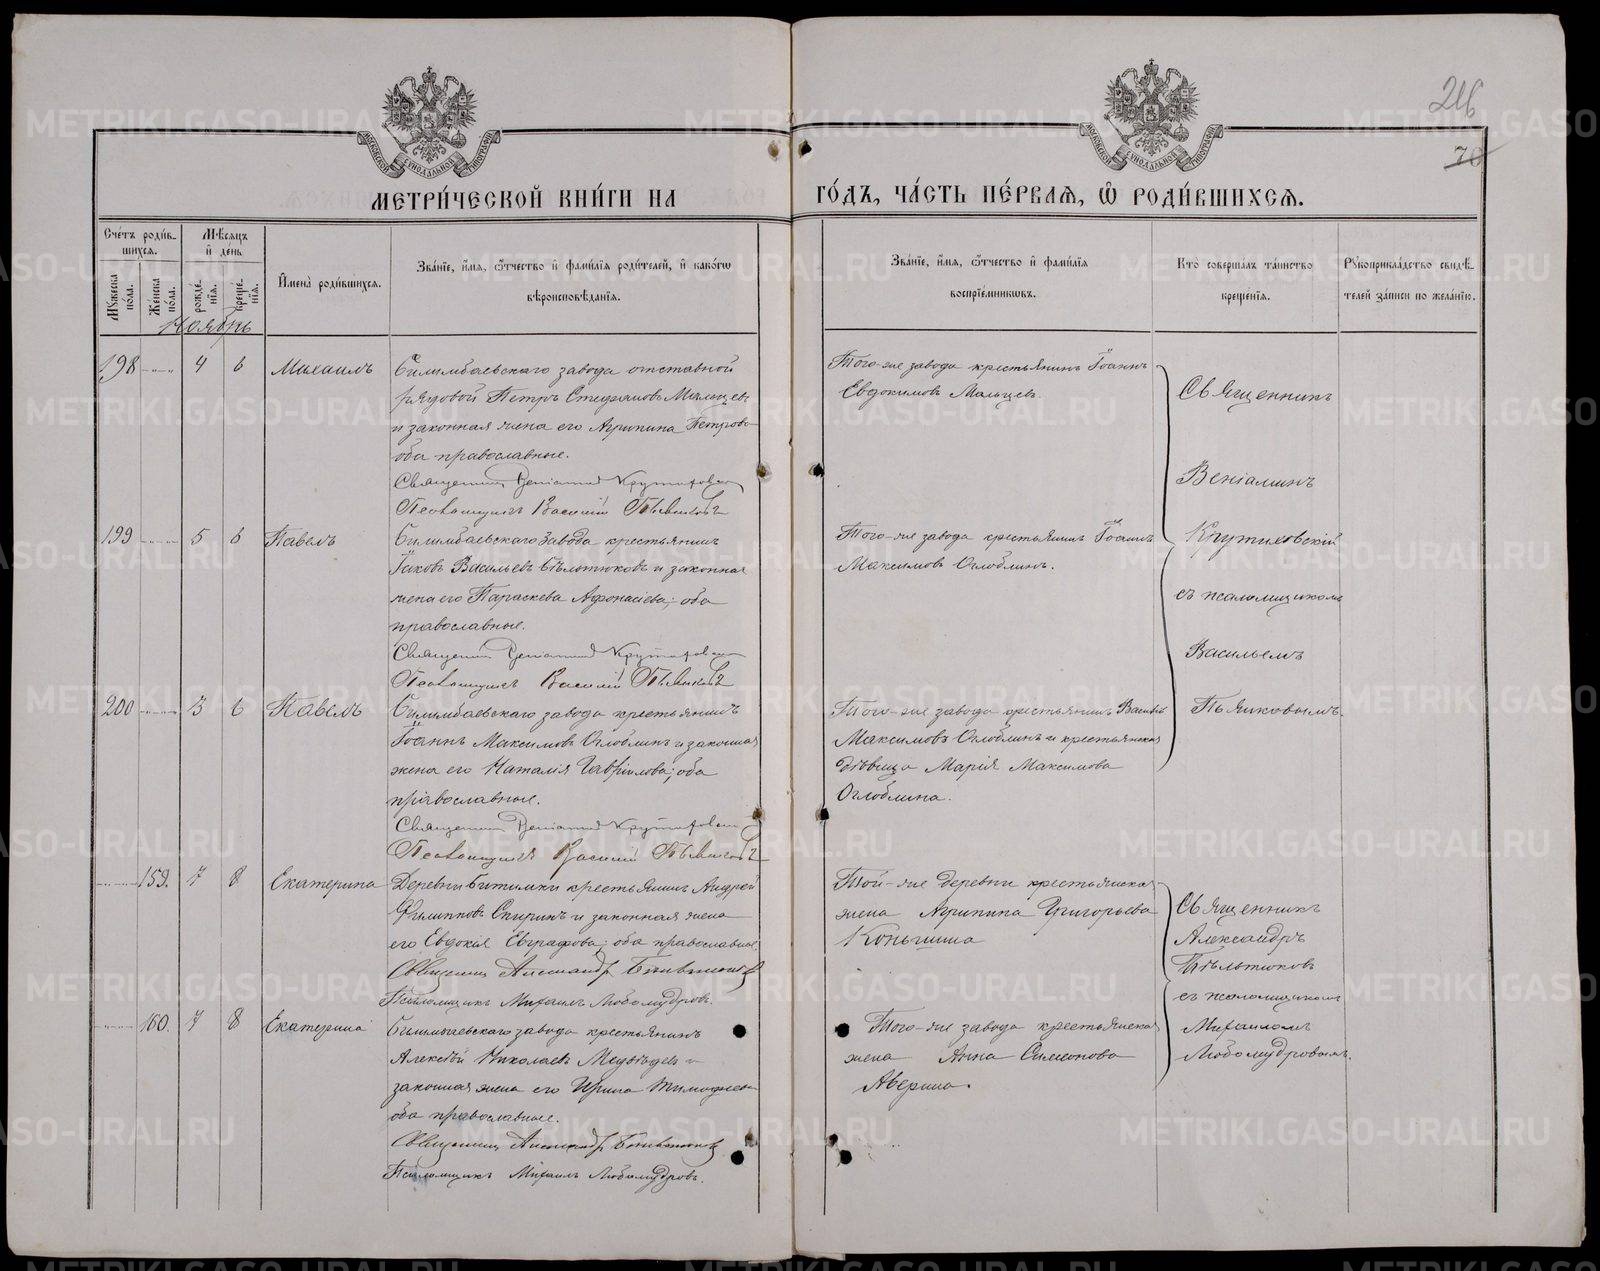 216
70
МОСКОВСКОЙ СѴНОДАЛЬНОЙ ТИПОГРАФІИ
МОСКОВСКОЙ СѴНОДАЛЬНОЙ ТИПОГРАФІИ
МЕТРИ́ЧЕСКОЙ КНИ́ГИ НА
ГО́ДЪ, ЧА́СТЬ ПЕ́РВАѦ, Ѡ҆ РОДИ́ВШИХСѦ.
Сче́тъ роди́в-
шихсѧ.
Мꙋ́жеска по́ла.
Же́нска по́ла.
Мѣ́сѧцъ
и҆ де́нь
рожде́нїѧ.
креще́нїѧ.
И҆мена̀ роди́вшихсѧ.
Зва́нїе, и҆́мѧ, ѻ҆́тчество и҆ фами́лїѧ роди́телей, и҆ како́гѡ
вѣроисповѣ́данїѧ.
Зва́нїе, и҆́мѧ, ѻ҆́тчество и҆ фами́лїѧ
воспрїе́мникѡвъ.
Кто̀ соверша́лъ та́инство
креще́нїѧ.
Рꙋкоприкла́дство свидѣ́-
телей за́писи по жела́нїю.
Ноябрь
198 4 6 Михаилъ
Билимбаевскаго завода отставной
рядовой Петръ Стефановъ Мальцевъ
и законная жена его Агрипина Петрова
оба православные.
Священникъ Веніаминъ Крутиховскій
Псаломщикъ Василій Пьянковъ
Того-же завода крестьянинъ Іоаннъ
Евдокимовъ Мальцевъ.
Священникъ
Веніаминъ
Крутиховскій
съ псаломщикомъ
Васильемъ
Пьянковымъ.
199 5 6 Павелъ
Билимбаевскаго завода крестьянинъ
Іаковъ Васильевъ Бѣльтюковъ и законная
жена его Параскева Афонасіева; оба
православные.
Священникъ Веніаминъ Крутиховскій
Псаломщикъ Василій Пьянковъ
Того-же завода крестьянинъ Іоаннъ
Максимовъ Оглоблинъ.
200 3 6 Павелъ
Билимбаевскаго завода крестьянинъ
Іоаннъ Максимовъ Оглоблинъ и законная
жена его Наталія Гавріилова; оба
православные.
Священникъ Веніаминъ Крутиховскій
Псаломщикъ Василій Пьянковъ
Того-же завода крестьянинъ Василій
Максимовъ Оглоблинъ и крестьянская
дѣвица Марія Максимова
Оглоблина.
159. 7 8 Екатерина
Деревни Битимки крестьянинъ Андрей
Филипповъ Спиринъ и законная жена
его Евдокія Евграфова; оба православные
Священникъ Александръ Бѣльтюковъ
Псаломщикъ Михаилъ Любомудровъ.
Той-же деревни крестьянская
жена Агрипина Григорьева
Конышина
Священникъ
Александръ
Бѣльтюковъ
съ псаломщикомъ
Михаиломъ
Любомудровымъ.
160. 7 8 Екатерина
Билимбаевскаго завода крестьянинъ
Алексѣй Николаевъ Медвѣдевъ и
законная жена его Ирина Тимофеева
оба православные.
Священникъ Александръ Бѣльтюковъ
Псаломщикъ Михаилъ Любомудровъ.
Того-же завода крестьянская
жена Анна Симонова
Аверина.
METRIKI.GASO-URAL.RU